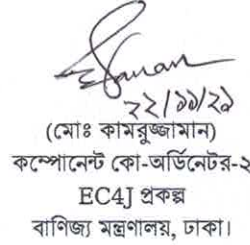 ২২/১১/২১
(মোঃ কামরুজ্জামান)
কম্পোনেন্ট কো-অর্ডিনেটর-২
EC4J প্রকল্প
বাণিজ্য মন্ত্রণালয়, ঢাকা।